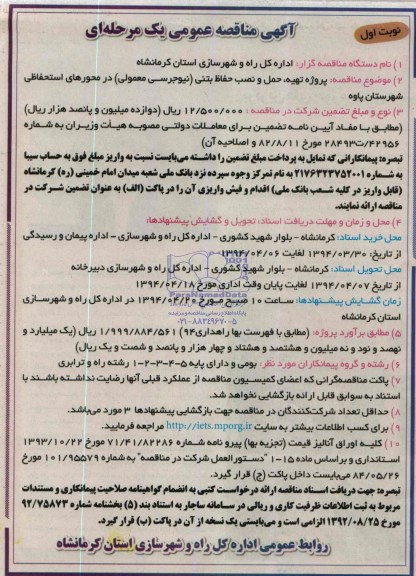 نوبت اول
آگهی مناقصه عمومی یک مرحله‌ای
۱) نام دستگاه مناقصه گزار: اداره کل راه و شهرسازی استان کرمانشاه
۲) موضوع مناقصه: پروژه تهیه، حمل و نصب حفاظ بتنی (نیوجرسی معمولی) در محورهای استحفاظی
شهرستان پاوه
۳) نوع و مبلغ تضمین شرکت در مناقصه : ۱۲/۵۰۰/۰۰۰ ریال (دوازده میلیون و پانصد هزار ریال)
(مطابق با مفاد آیین نامه تضمین برای معاملات دولتی مصوبه هیأت وزیران به شماره
۴۲۹۵۶/ت۲۸۴۹۳ مورخ ۸۲/۸/۱۱ و اصلاحیه آن)
تبصره: پیمانکارانی که تمایل به پرداخت مبلغ تضمین را داشته می‌بایست نسبت به واریز مبلغ فوق به حساب سیبا
به شماره ۲۱۷۶۳۲۳۷۵۲۰۰۱ به نام تمرکز وجوه سپرده نزد بانک ملی شعبه میدان امام خمینی (ره) کرمانشاه
(قابل واریز در کلیه شعب بانک ملی) اقدام و فیش واریزی آن را در پاکت (الف) به عنوان تضمین شرکت در
مناقصه ارائه نمایند.
۴) محل و زمان و مهلت دریافت اسناد، تحویل و گشایش پیشنهادها:
محل خرید اسناد: کرمانشاه - بلوار شهید کشوری - اداره کل راه و شهرسازی - اداره پیمان و رسیدگی
از تاریخ: ۱۳۹۴/۰۳/۳۰ لغایت ۱۳۹۴/۰۴/۰۶
محل تحویل اسناد: کرمانشاه - بلوار شهید کشوری - اداره کل راه و شهرسازی دبیرخانه
از تاریخ ۱۳۹۴/۰۴/۰۷ لغایت پایان وقت اداری مورخ ۱۳۹۴/۰۴/۱۸
زمان گشایش پیشنهادها: ساعت ۱۰ صبح مورخ ۱۳۹۴/۰۴/۲۰ در اداره کل راه و شهرسازی
استان کرمانشاه
ParaNamadData
پایگاه اطلاع رسانی مناقصه و مزایده
۰۲۱-۸۸۳۴۹۶۷۰-۵
۵) مطابق برآورد پروژه: (مطابق با فهرست بها راهداری ۹۴) ۱/۹۹۹/۸۸۴/۵۶۱ ریال (یک میلیارد و
نهصد و نود و نه میلیون و هشتصد و هشتاد و چهار هزار و پانصد و شصت و یک ریال)
۶) رشته و گروه پیمانکاران مورد نظر: بومی و دارای پایه ۵-۴-۳-۲-۱ رشته راه و ترابری
۷) پاکت مناقصه‌گرانی که اعضای کمیسیون مناقصه از عملکرد قبلی آنها رضایت نداشته باشند با
استناد به سوابق قابل ارائه بازگشایی نخواهد شد.
۸) حداقل تعداد شرکت‌کنندگان در مناقصه جهت بازگشایی پیشنهادها ۳ مورد می‌باشد.
۹) برای کسب اطلاعات بیشتر به سایت http://iets.mporg.ir مراجعه فرمایید.
۱۰) کلیه اوراق آنالیز قیمت (تجزیه بها) پیرو نامه شماره ۷۱/۴۱/۸۲۲۸۶ مورخ ۱۳۹۳/۱۰/۲۲
استانداری و براساس ماده ۱۵-۱ "دستورالعمل شرکت در مناقصه" به شماره ۱۰۱/۹۵۵۷۹ مورخ
۸۴/۰۵/۲۶ می‌بایست داخل پاکت (ج) قرار گیرد.
تبصره: جهت دریافت اسناد مناقصه ارائه درخواست کتبی به انضمام گواهینامه صلاحیت پیمانکاری و مستندات
مربوط به ثبت اطلاعات ظرفیت کاری و ریالی در سامانه ساجار به استناد بند (۵) بخشنامه شماره ۹۲/۷۵۸۷۳
مورخ ۱۳۹۲/۰۸/۲۵ الزامی است و می‌بایستی یک نسخه از آن در پاکت (ب) قرار گیرد.
روابط عمومی اداره کل راه و شهرسازی استان کرمانشاه